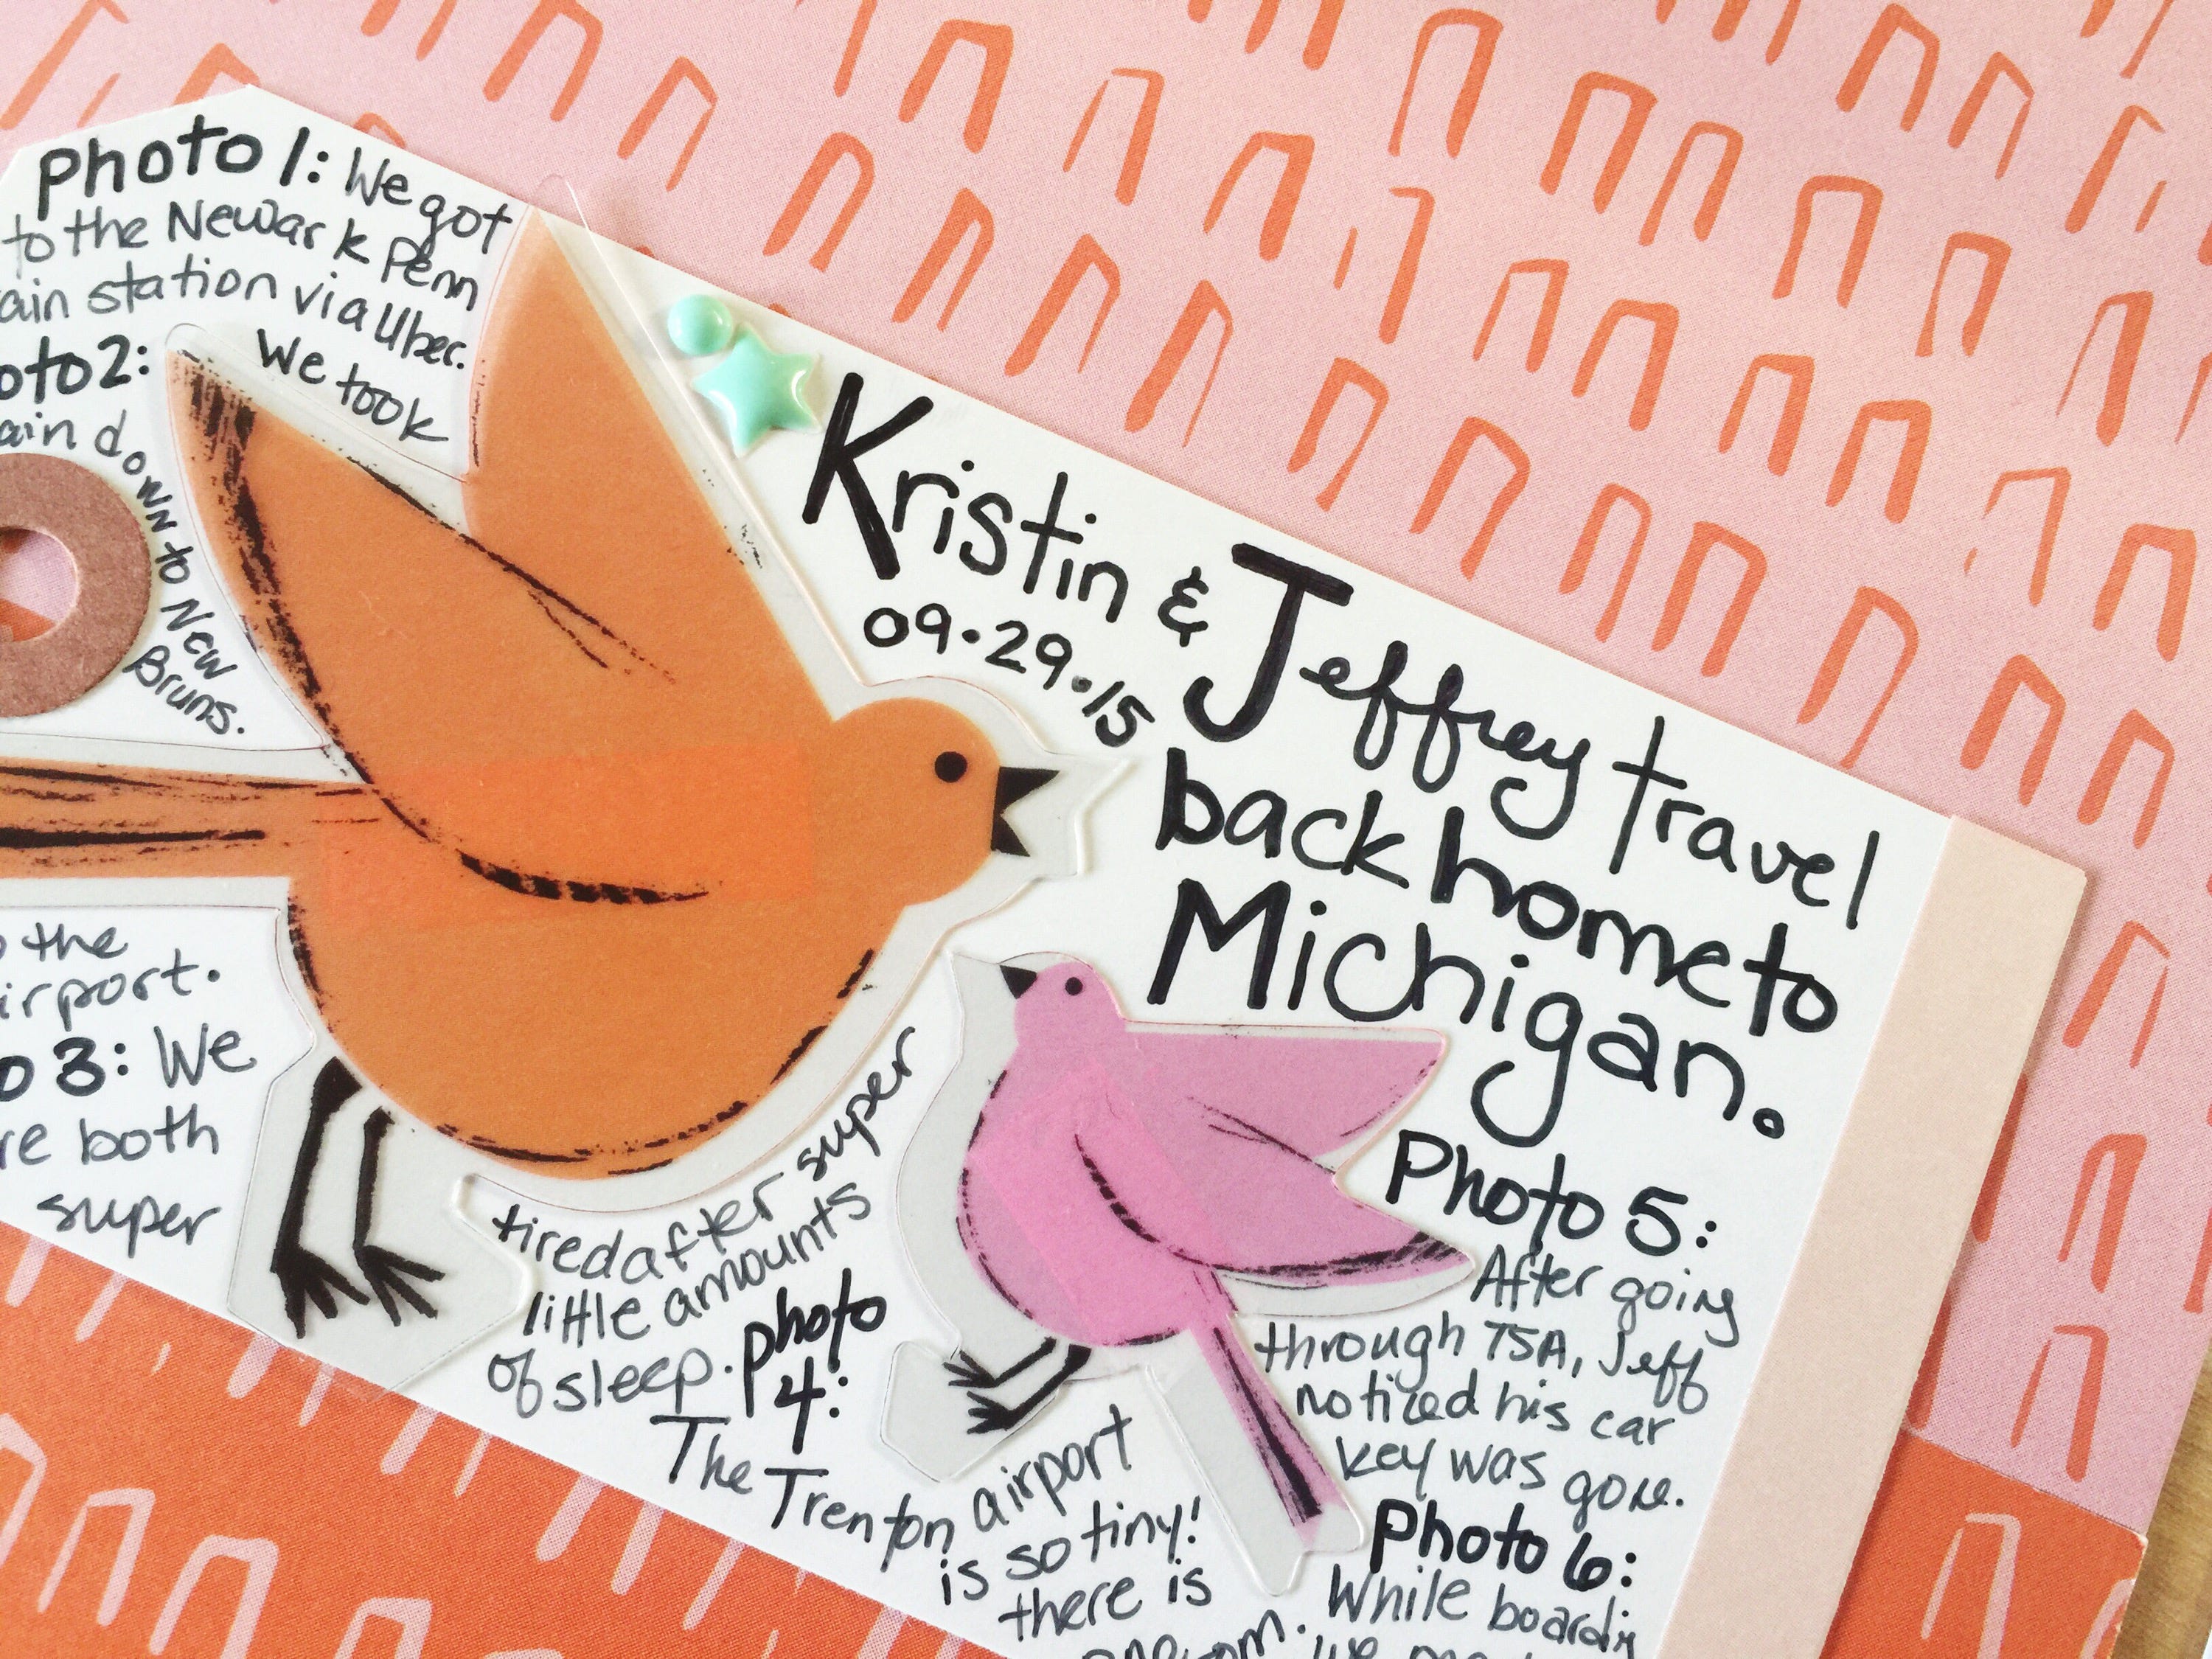 Photo 1: We got
to the Newark Penn
ain station via Uber.
oto 2: We took
ain down to New
Bruns.
Kristin & Jeffrey travel
09.29.15
back home to
Michigan.
the
irport.
o 3: We
re both
super
tired after super
little amounts
of sleep. photo
4:
The Trenton airport
is so tiny!
there is
Photo 5:
After going
through TSA, Jeff
noticed his car
key was gone.
Photo 6:
While boardin